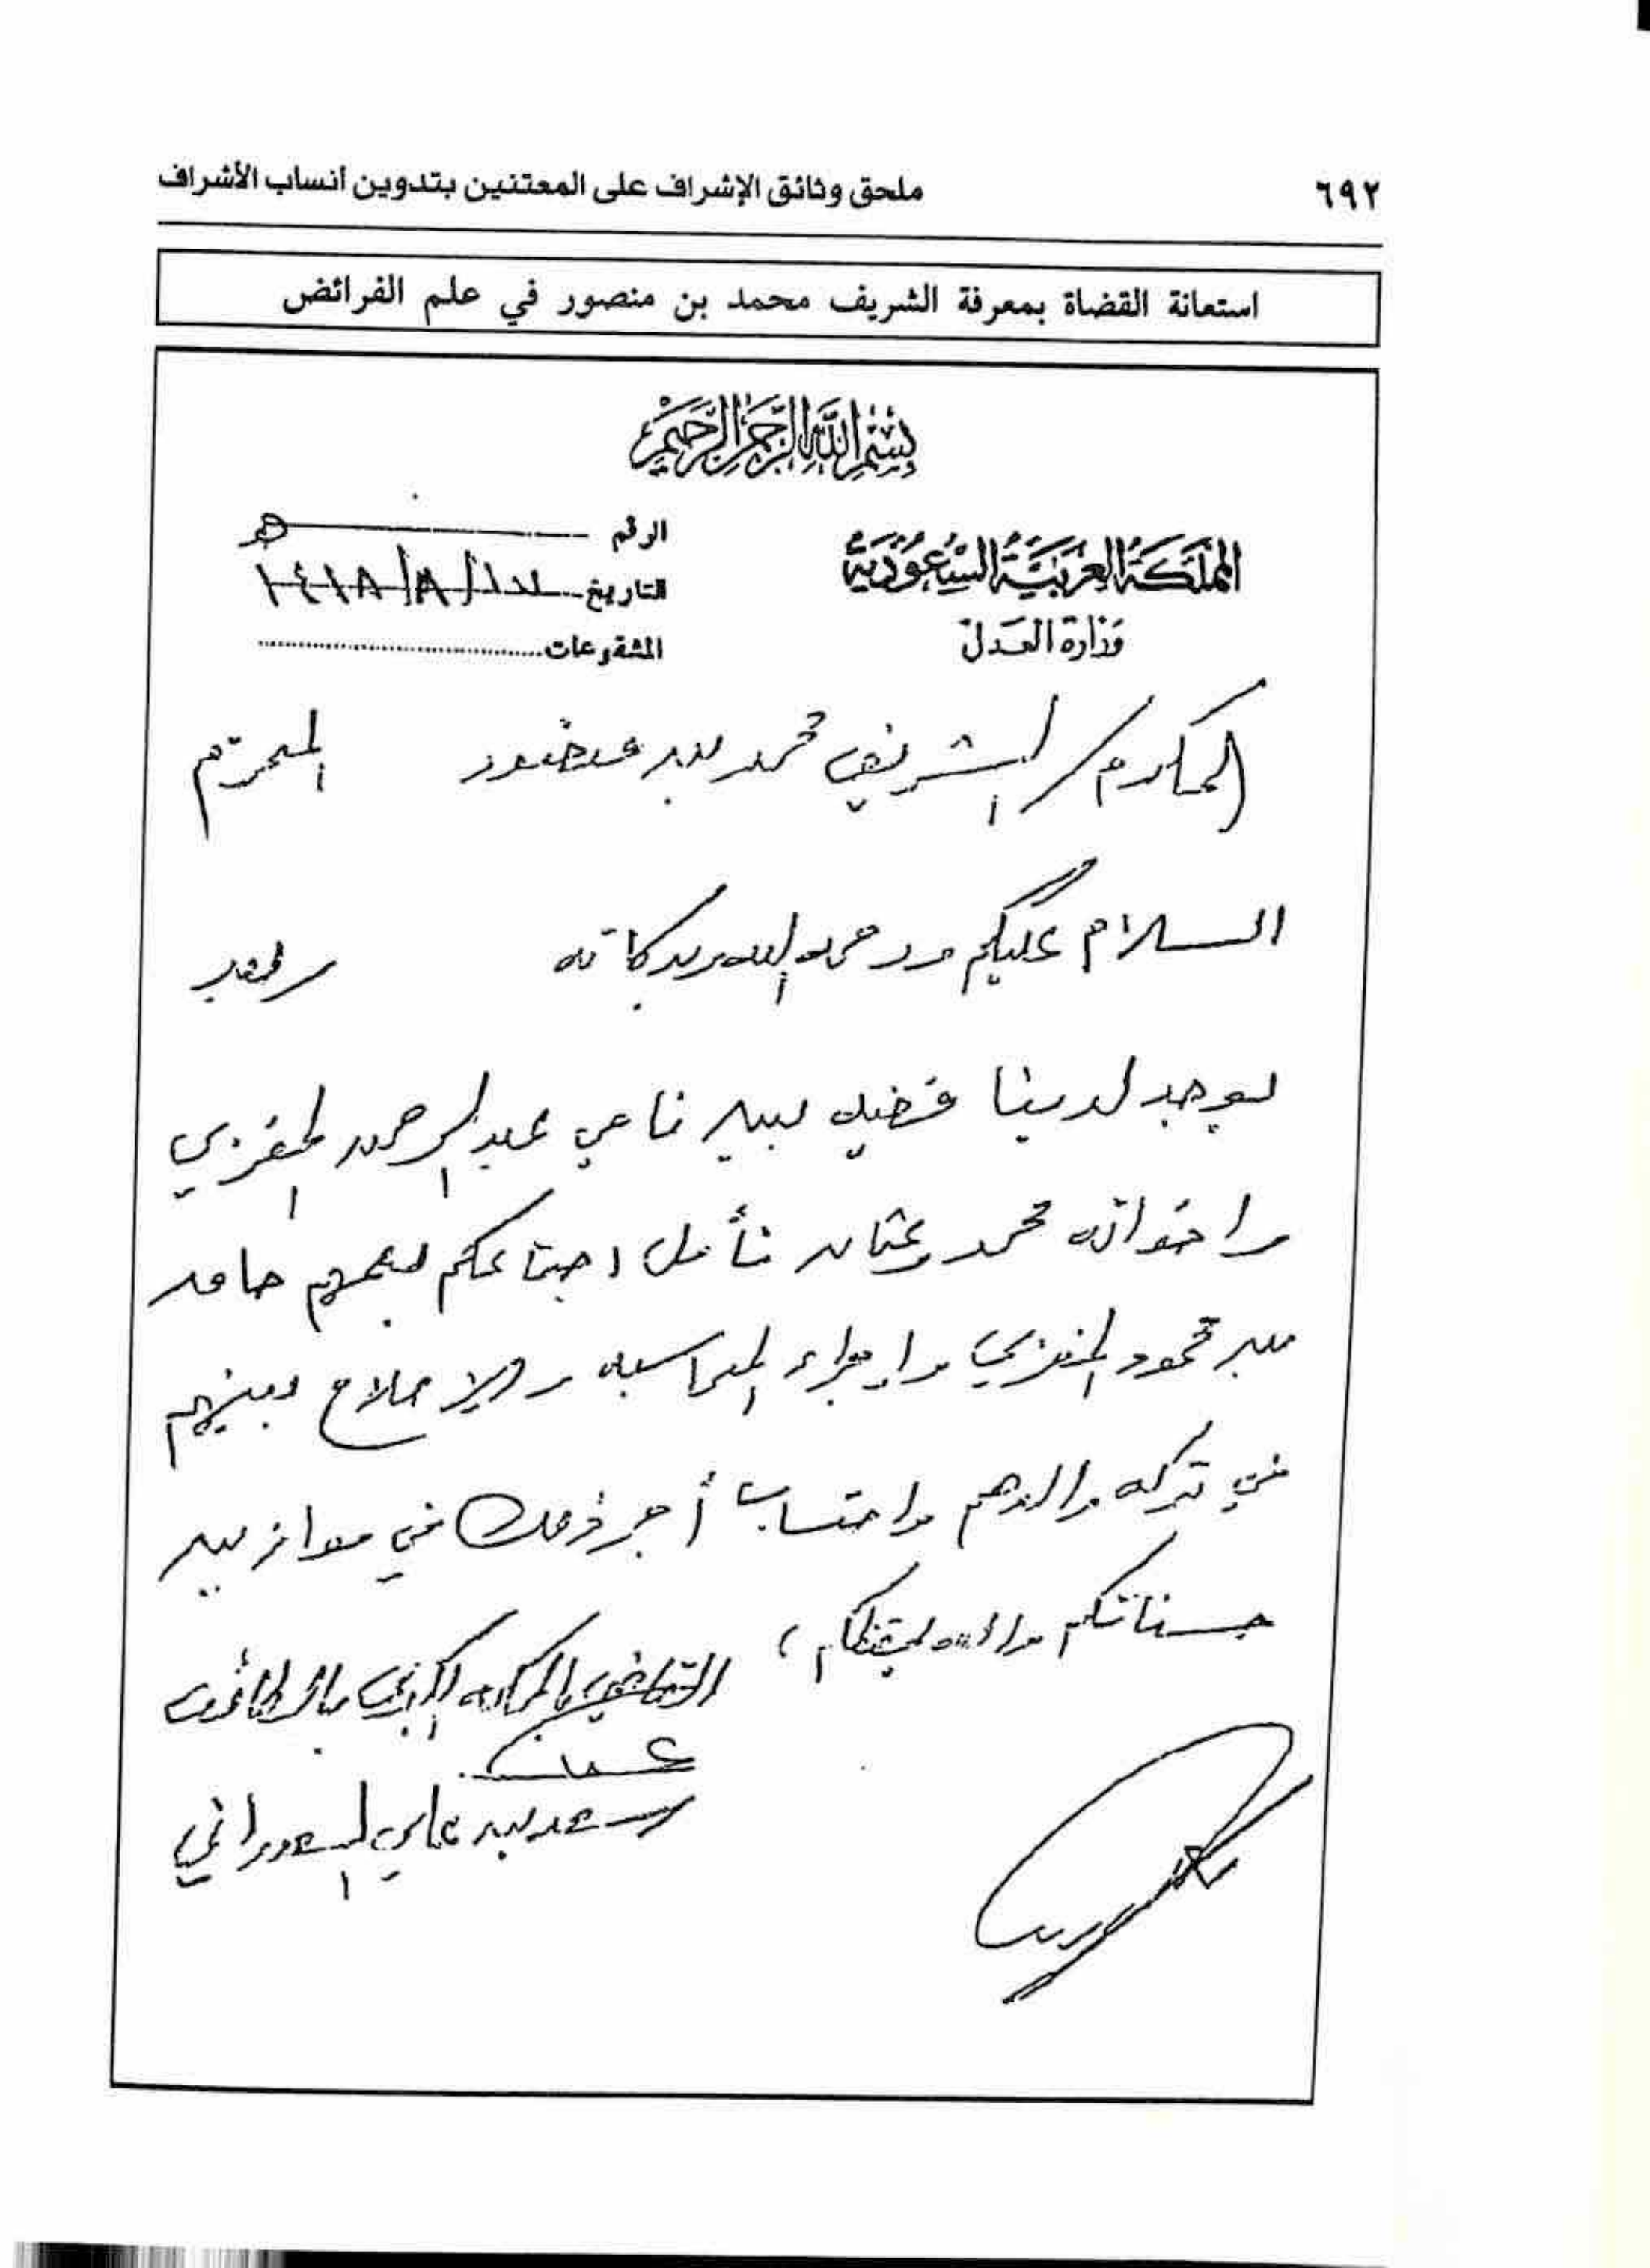 ٦٩٢
ملحق وثائق الإشراف على المعتنين بتدوين أنساب الأشراف
استعانة القضاة بمعرفة الشريف محمد بن منصور في علم الفرائض
بسم الله الرحمن الرحيم
المملكة العربية السعودية
وزارة العدل
الرقم
التاريخ / ٨ / ١٤١٨ هـ
المشفوعات
المكرم / الشريف محمد بن منصور المحترم
السلام عليكم ورحمة الله وبركاته وبعد
يوجد لدينا قضيه بين ناجي عبدالرحمن
واخوانه محمد وعثمان نأمل اجتماعكم بعمهم حامد
بن محمود واجراء المحاسبه والاصلاح بينهم
في تركه والدهم واحتساب أجر ذلك في موازين
حسناتكم والله يحفظكم ؛
القاضي بالمحكمه الكبرى بالطائف
سعد بن علي